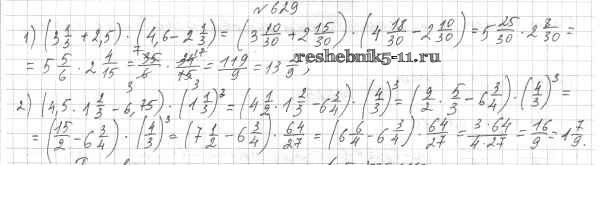 №629
1) (3 1/3 + 2,5) · (4,6 - 2 1/3) = (3 10/30 + 2 15/30) · (4 18/30 - 2 10/30) = 5 25/30 · 2 8/30 =
= 5 5/6 · 2 4/15 = 35/6 · 34/15 = 119/9 = 13 2/9;
reshebnik5-11.ru
2) (4,5 · 1 2/3 - 6,75) · (1 1/3)³ = (4 1/2 · 1 2/3 - 6 3/4) · (4/3)³ = (9/2 · 5/3 - 6 3/4) · (4/3)³ =
= (15/2 - 6 3/4) · (4/3)³ = (7 1/2 - 6 3/4) · 64/27 = (6 6/4 - 6 3/4) · 64/27 = 3·64/4·27 = 16/9 = 1 7/9.